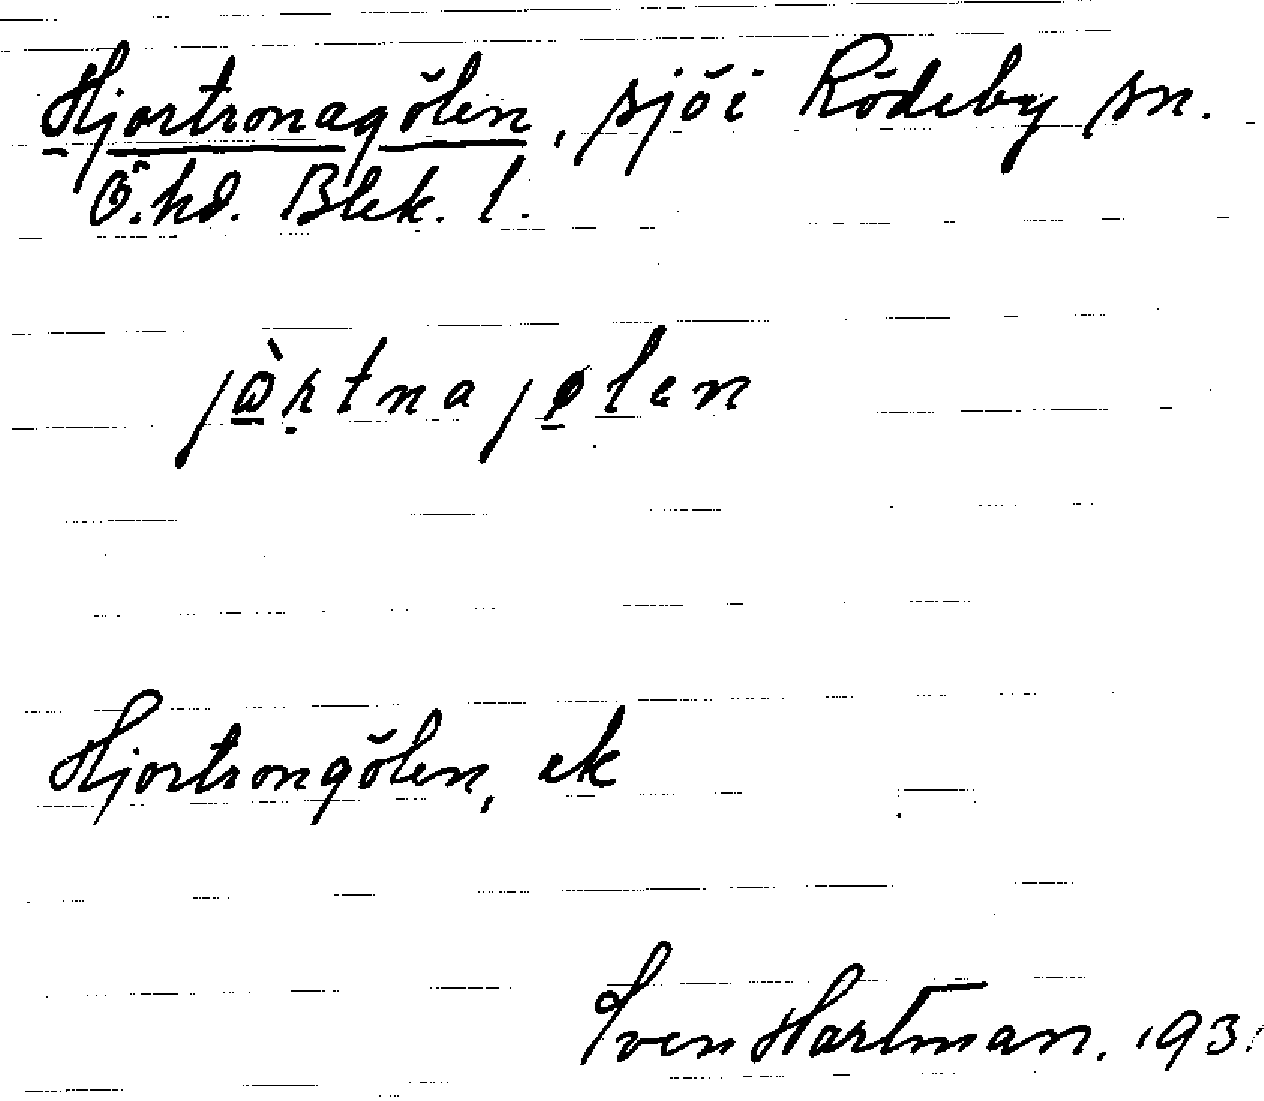 Hjortronagölen, sjö i Rödeby sn.
Ö. hd. Blek. l.
jàrtnajølen
Hjortrongölen, ek
Sven Hartman. 193